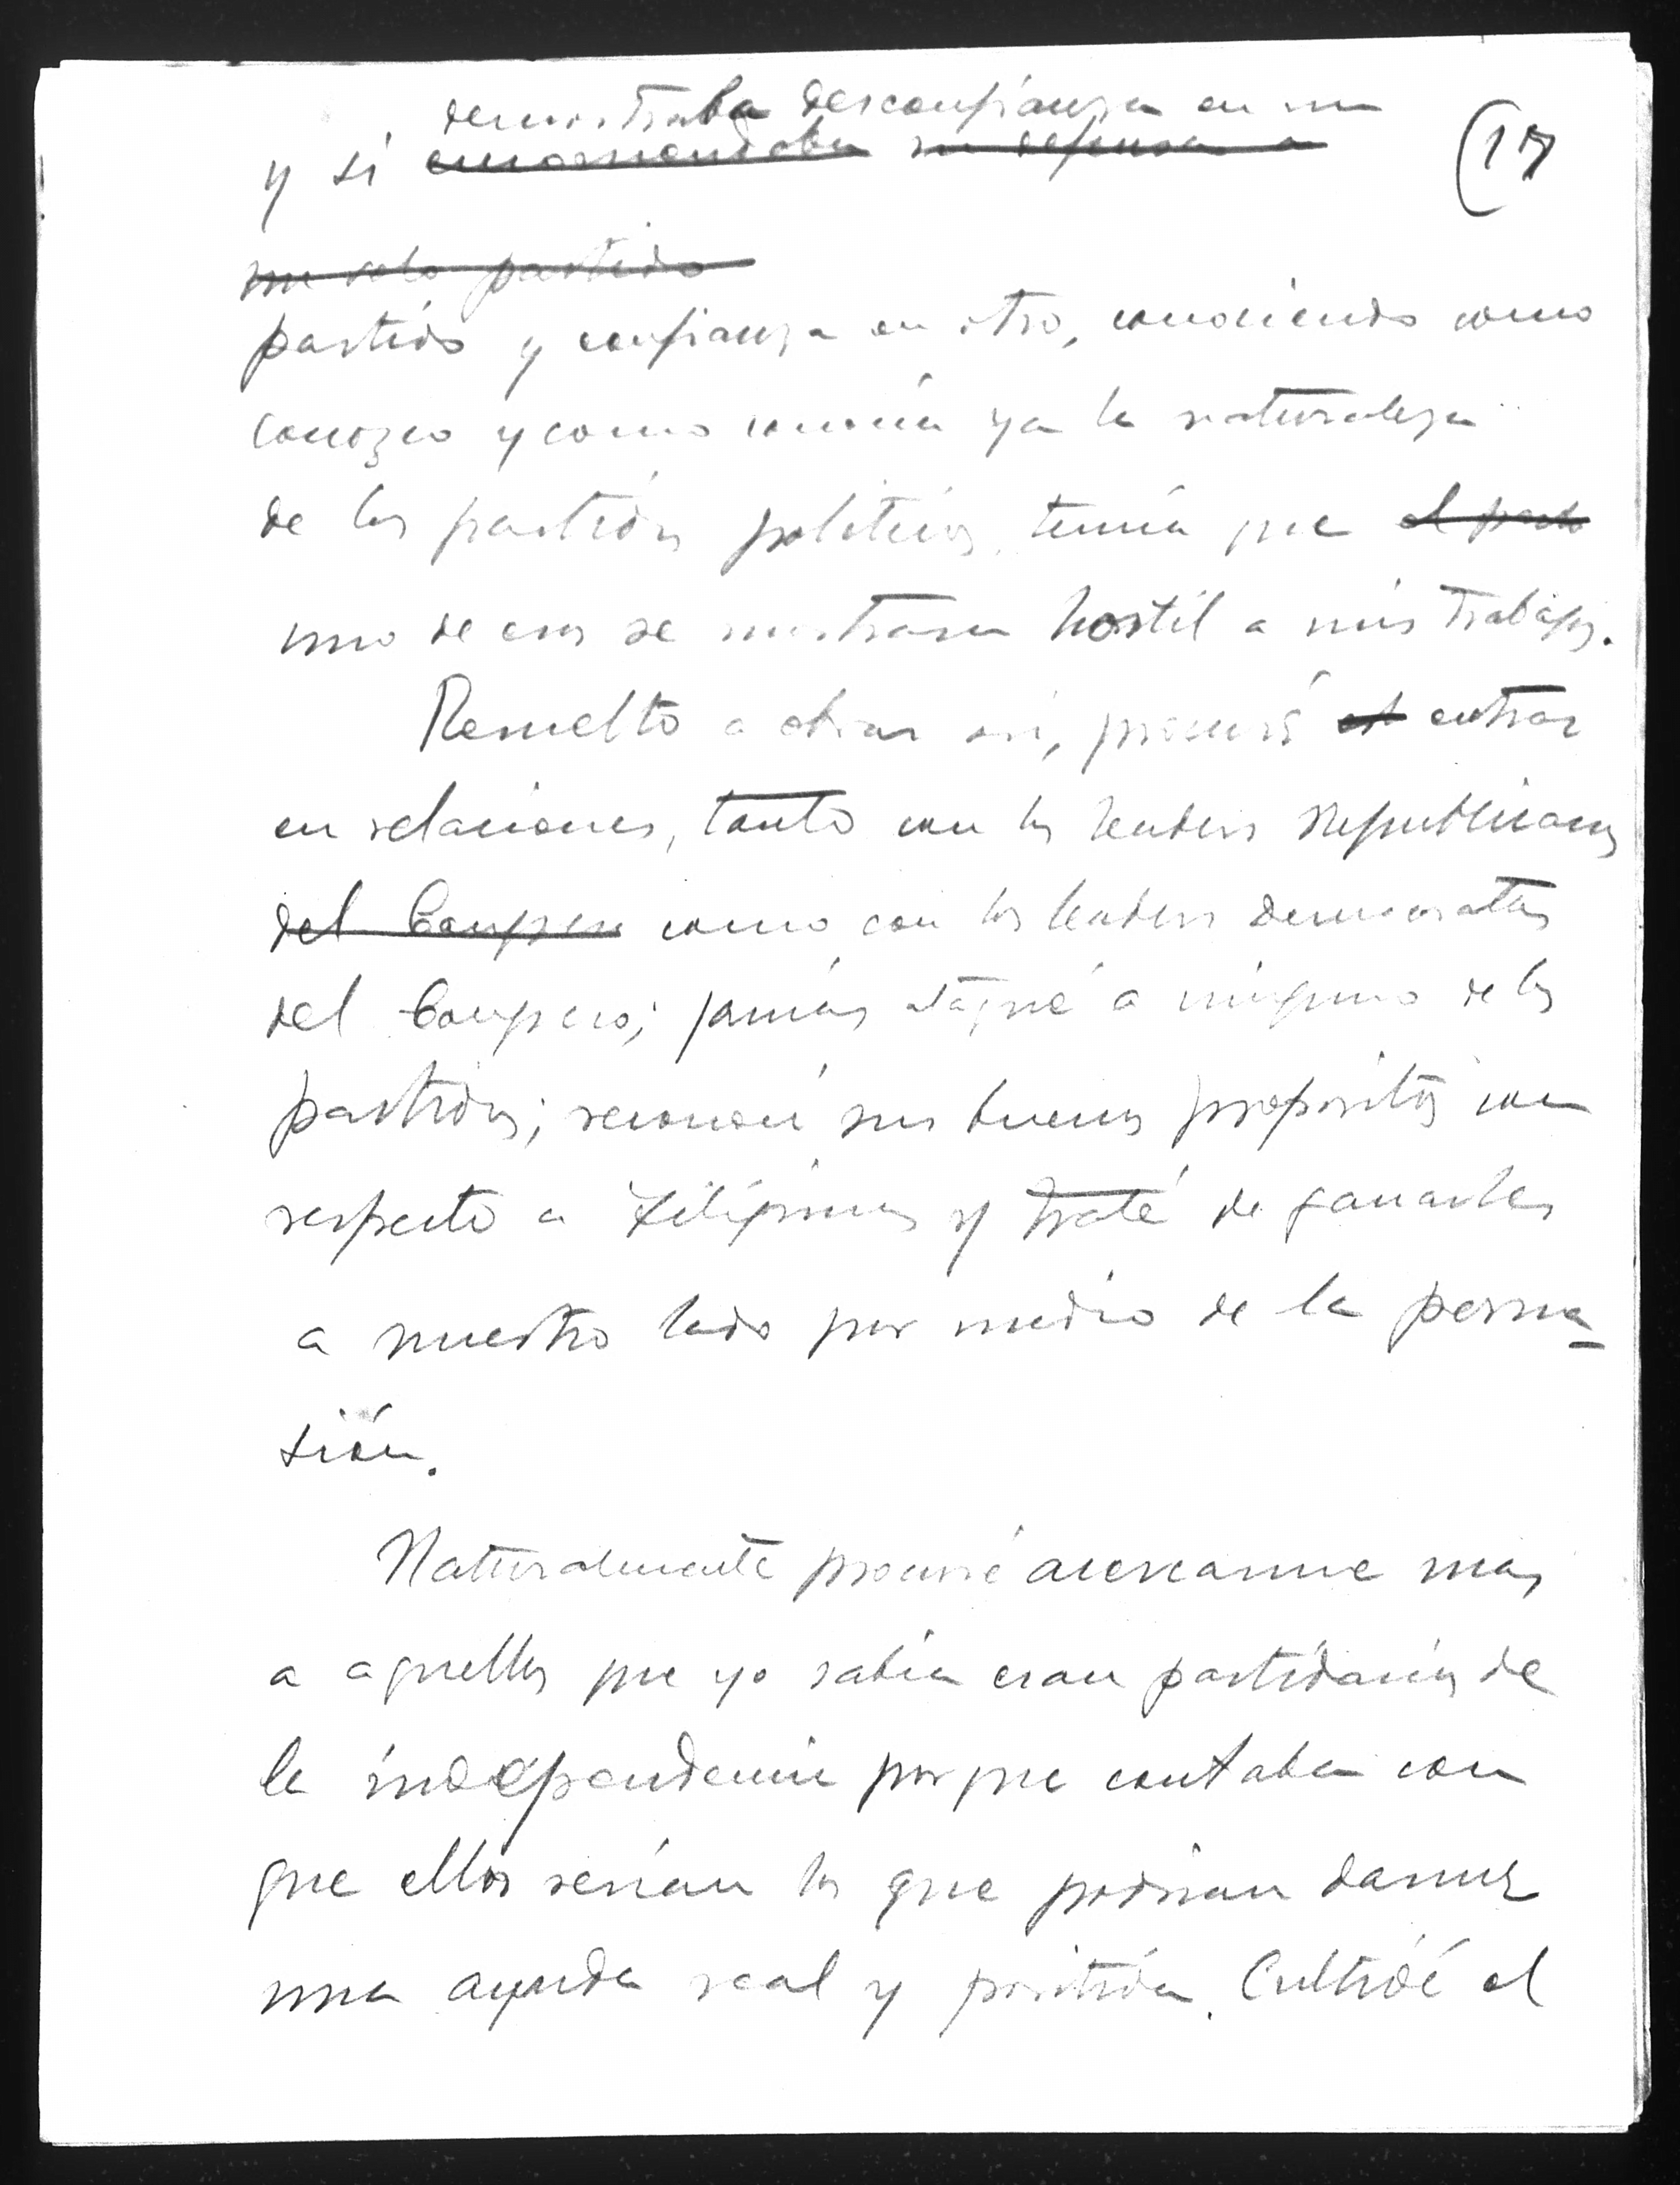 demostraba desconfianza en un
(17
y si encomendaba su defensa a
un solo partido
partido y confianza en otro, conociendo como
conozco y como conocía ya la naturaleza
de los partidos políticos, temía que el
uno de esos se mostrara hostil a mis trabajos.
Resuelto a obrar así, procuré entrar
en relaciones, tanto con los leaders republicanos
del Congreso como con los leaders democratas
del Congreso; jamás ataqué a ninguno de los
partidos; reconocí sus buenos propósitos con
respecto a Filipinas y traté de ganarles
a nuestro lado por medio de la persua-
sión.
Naturalmente procuré acercarme mas
a aquellos que yo sabía eran partidarios de
la independencia porque contaba con
que ellos serían los que podrían darme
una ayuda real y positiva. Cultivé el